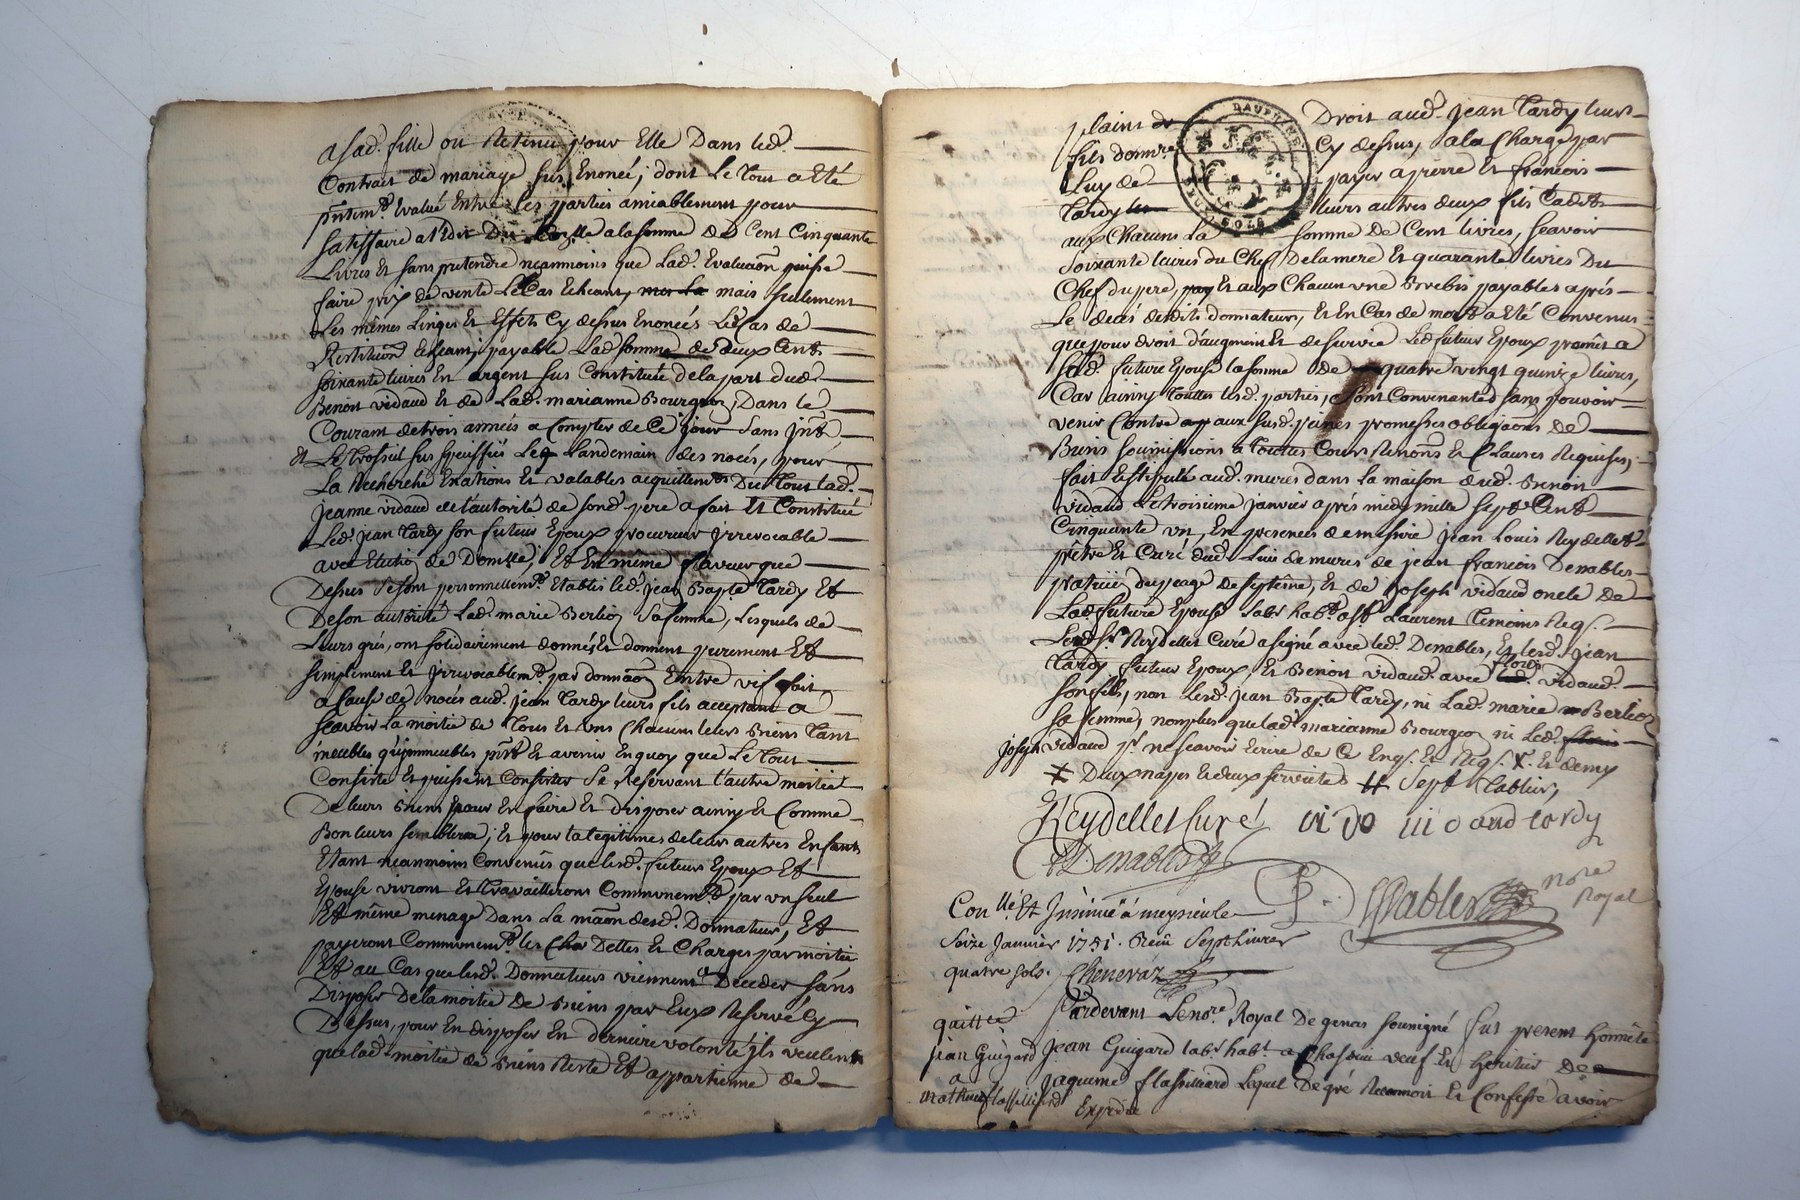 a sad. fille ou Retenu pour Elle Dans led.
Contrat de mariage sus Enoncé; dont Le Tout a Eté
pntemt. Evalué Entre Les parties amiablement pour
satisfaire a l'Edit a la somme de Cent Cinquante
Livres Et sans pretendre neanmoins que Lad. Evaluaõn puisse
faire prix de vente Le Cas Echeant, mais seulement
Les mêmes Linges Et Effets Cy dessus Enoncés Le Cas de
Restituõn Echeant, payable Lad. somme de deux Cent
soixante livres En argent sus Constituée de la part dud.
Benoit vidaud et de Lad. marianne Bourgeoz, Dans le
Courant de trois années a Compter de Ce jour sans jnt.
et Le Trossel sus speciffié Le Landemain des noces, pour
La Recherche Exations Et valables acquittemts. Du Tout lad.
jeanne vidaud de l'autorité de sond. pere a fait Et Constitué
Led. jean Tardy son futeur Epoux procureur jrrevocable
avec Election de Domlle., Et En même faveur que
Dessus se sont personnellemt. Etablis led. jean Bapte. Tardy Et
De son autorité Lad. marie Berlioz sa femme, Lesquels de
Leurs grés, ont solidairement donné Et donnent purement Et
simplement Et jrrevocablemt. par donnaõn Entre vif fait
a Cause de noces aud. jean Tardy leurs fils acceptant a
scavoir La moitié de Tous Et uns Chacuns leurs Biens Tant
meubles qu'jmmeubles pnt. Et avenir En quoy que Le Tout
Consiste Et puissent Consister se Reservant l'autre moitié
De leurs Biens pour En faire Et disposer ainsy Et Comme
Bon leurs semblera, Et pour la legitimes de leur autres Enfants
Etant neanmoins Convenus que lesd. futeurs Epoux Et
Epouse vivront Et travailleront Communemt. par un seul
Et même menage Dans La maõn desd. Donnateur, Et
payeront Communemt. les Dettes Et Charges par moitié
Et au Cas que lesd. Donnateurs viennent a Deceder sans
Disposer De la moitié De Biens par Eux Reservé Cy
Dessus, pour En disposer En derniere volonté jls veulent
que lad. moitié de Biens Reste Et appartienne de
plains dr Droit aud. jean Tardy leurs
fils donnre. Cy dessus, a la Charge par
Luy de payer a pierre Et francois
Tardy les leurs autres deux fils Cadets
aux Chacuns La somme De Cent livres, scavoir
soixante livres du Chef De la mere Et quarante livres Du
Chef du pere, Et aux Chacun une Brebis payables après
Le decés desdits donnateurs, Et En Cas de mort a Eté Convenus
que pour droit d'augment Et de survie Led. futeur Epoux promet a
sad. future Epouse la somme De quatre vingt quinze livres,
Car ainsy Touttes lesd. parties, sont Convenantes sans pouvoir
venir Contre aux susd. peines promesses obligaõns De
Biens soumissions a Touttes Cours Renonns. Et Clauses Requises,
fait Et stipulé aud. mures dans La maison dud. Benoit
vidaud Le troisieme janvier après midy mille sept Cent
Cinquante un, En presences de messire jean Louis Reydellet
prêtre Et Curé dud. Lieu de mures de jean francois Denables
du peage De septême, Et de joseph vidaud oncle de
Lad. future Epouse Labr. habt. a st. Laurent Temoins Req.
Led. sr. Reydellet Curé a signé avec led. Denables, Et lesd. jean
Tardy futeur Epoux Et Benoit vidaud avec vidaud
son fils, non lesd. jean Bapte Tardy, ni Lad. marie Berlioz
sa femme, non plus que lad. marianne Bourgeoz ni Led.
joseph vidaud pr. ne scavoir Ecrire de Ce Enq. Et Req. X. Et demy
X Deux nappes Et deux serviettes # sept Tablier,
Reydellet Curé vido
Denables
nore
Royal
Conllé. Et Insinué a meyzieule
seize Janvier 1751. Reçu Sept livres
quatre sols. Cheneraz
quitte Pardevant Le nore. Royal De genas soussigné fut present honnête
jean Guigard Jean Guigard labr. habt. a Chassieu veuf Et heritier De
a Jaqueme Lequel De gré Reconnoit Et Confesse avoir
Expedié
DAUPHINE